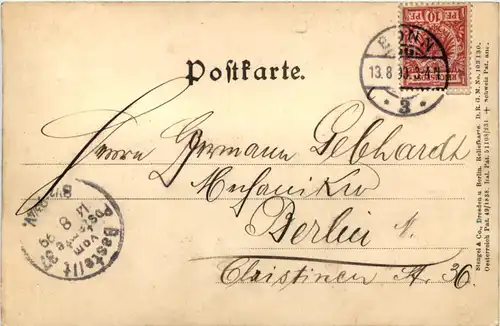 Postkarte.
BONN
13.8.99.3-4N
* 3 *
10 PF
Herrn Germann Gebhardt
Mechaniker
Berlin N.
Christinen St. 36.
Bestellt
vom
Postamte
14 8 99
8½-9¾V.
Stengel & Co., Dresden u. Berlin. Reliefkarte. D. R. G. M. No. 103 130.
Oesterreich Pat. 49/1838. Ital. Pat. 51105/231. + Schweiz Pat. anc.